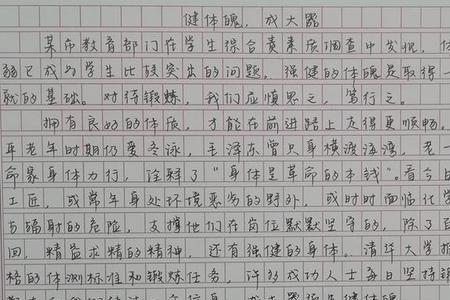 健体魄，成大器
某市教育部门在学生综合素质调查中发现，体
弱已成为学生比较突出的问题。强健的体魄是取得一
就的基础。对待锻炼，我们应慎思之，笃行之。
拥有良好的体质，才能在前进路上走得更顺畅。
年老年时期仍要冬泳，毛泽东曾只身横渡海湾，老一
命家身体力行，诠释了"身体是革命的本钱"。看今日
工匠，或常年身处环境恶劣的野外，或时时面临化学
与辐射的危险，支撑他们在岗位默默坚守的，除了
国，精益求精的精神，还有强健的身体。清洋大学
格的体测标准和锻炼任务，许多成功人士每日坚持锻